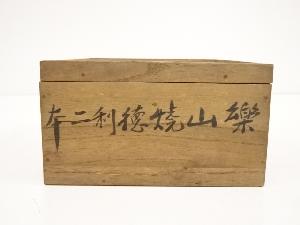 樂山焼德利二本